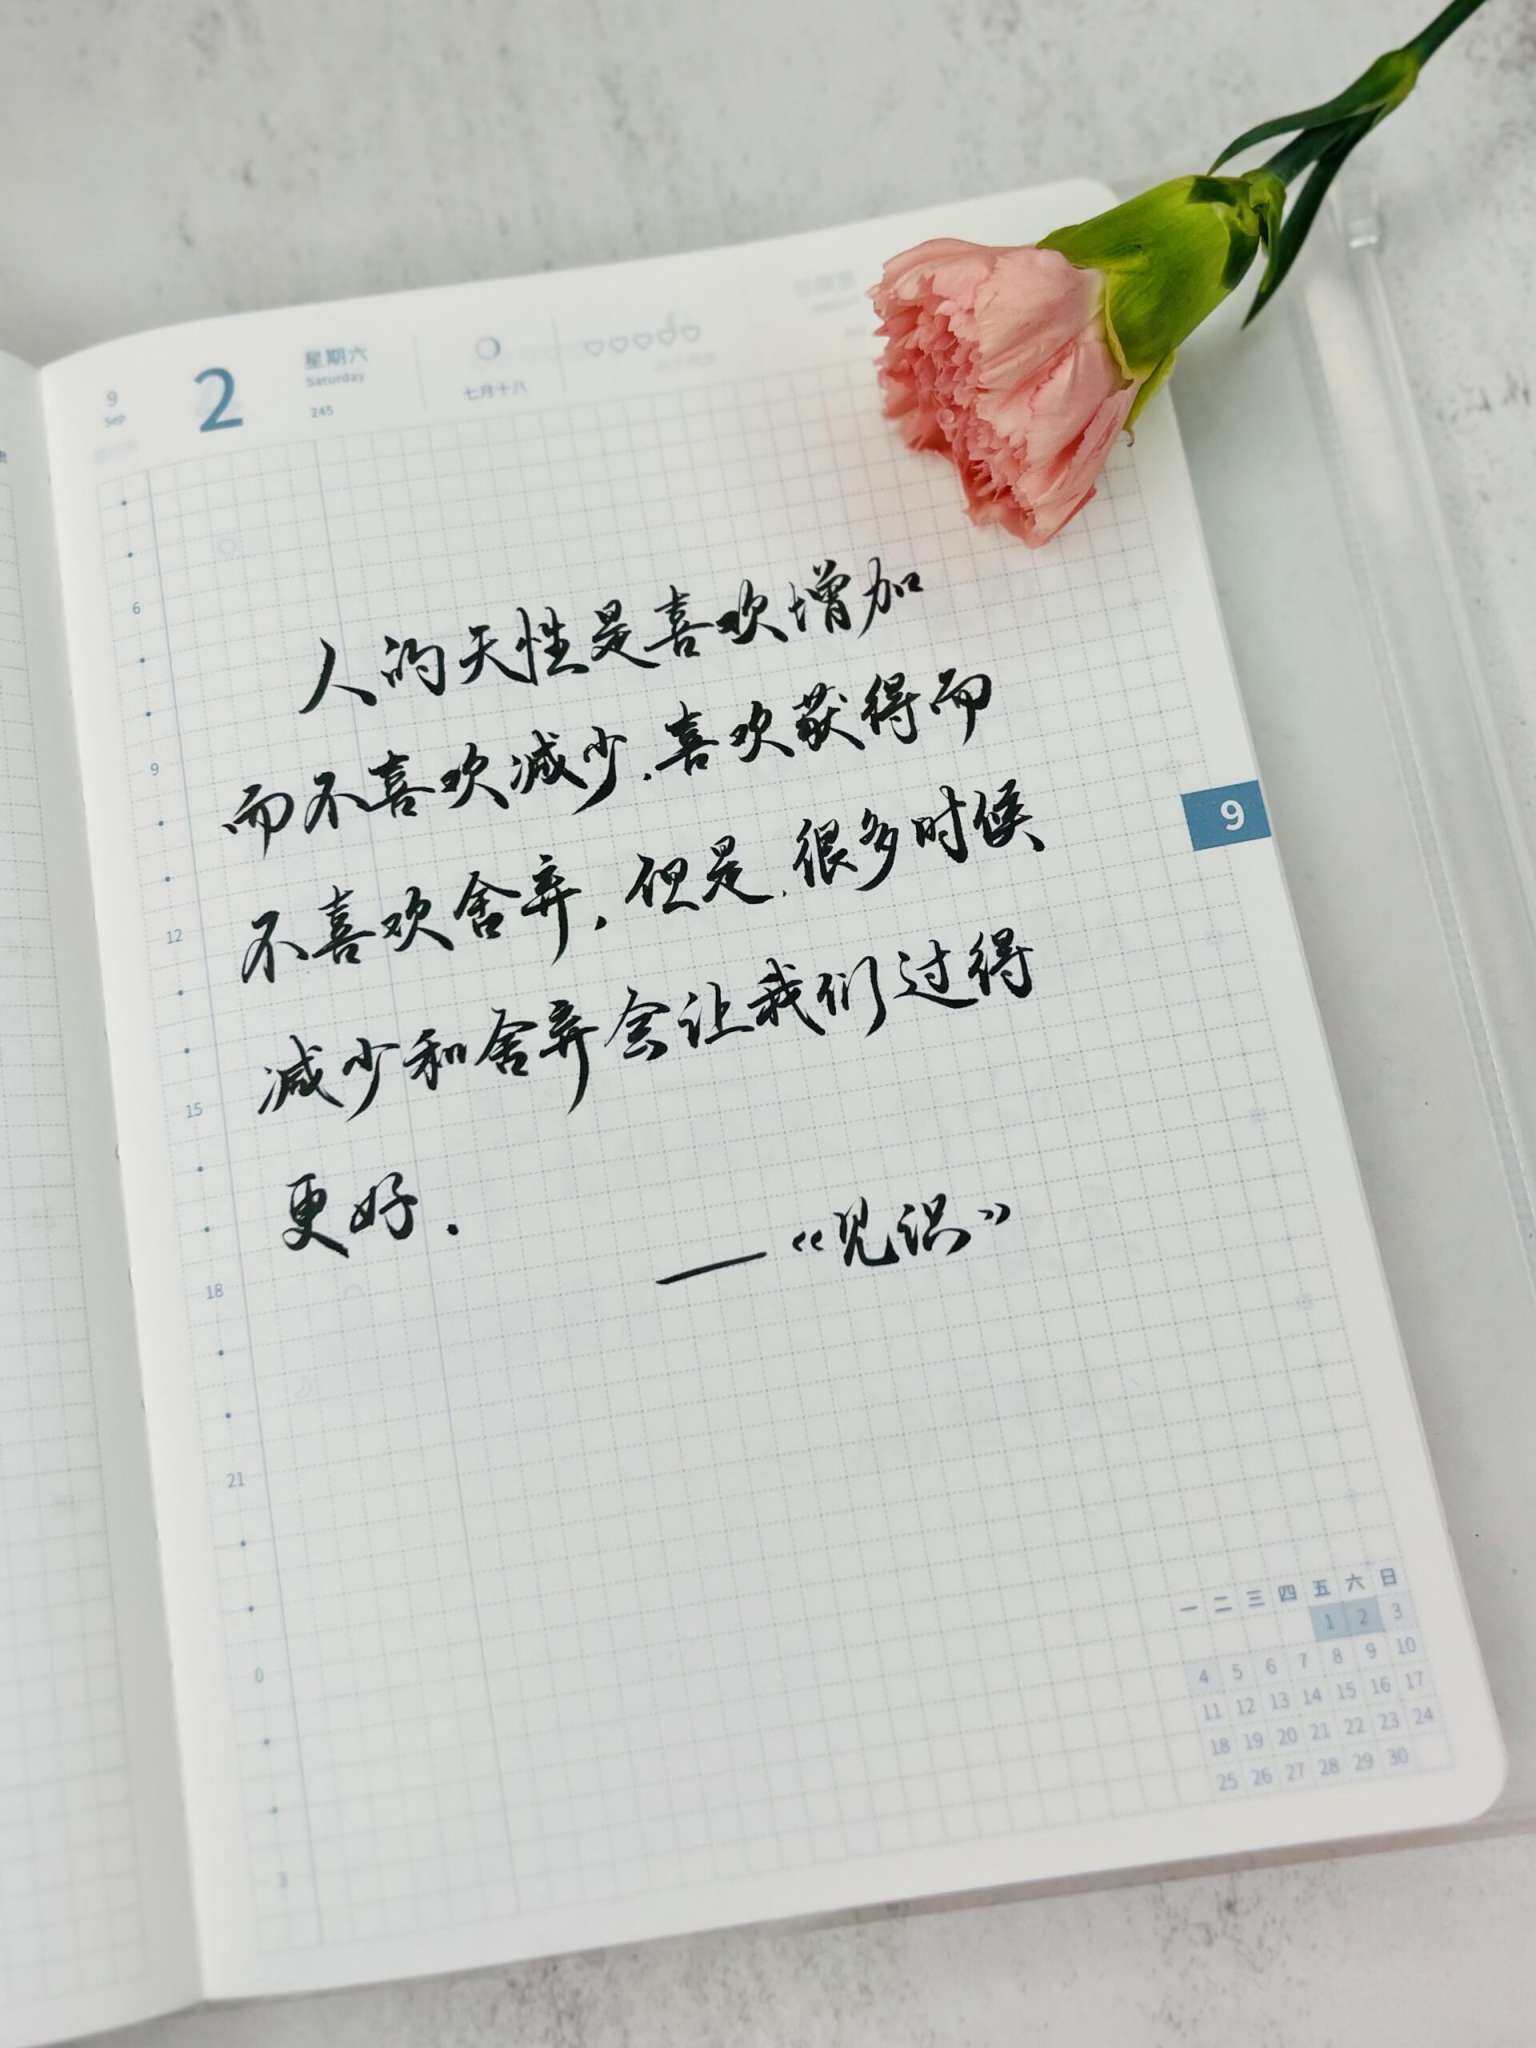 9
Sep
2
星期六
Saturday
245
七月十八
6
9
12
15
18
21
0
3
人的天性是喜欢增加
而不喜欢减少.喜欢获得而
不喜欢舍弃.但是.很多时候
减少和舍弃会让我们过得
更好.
——《见识》
9
一 二 三 四 五 六 日
1 2 3
4 5 6 7 8 9 10
11 12 13 14 15 16 17
18 19 20 21 22 23 24
25 26 27 28 29 30